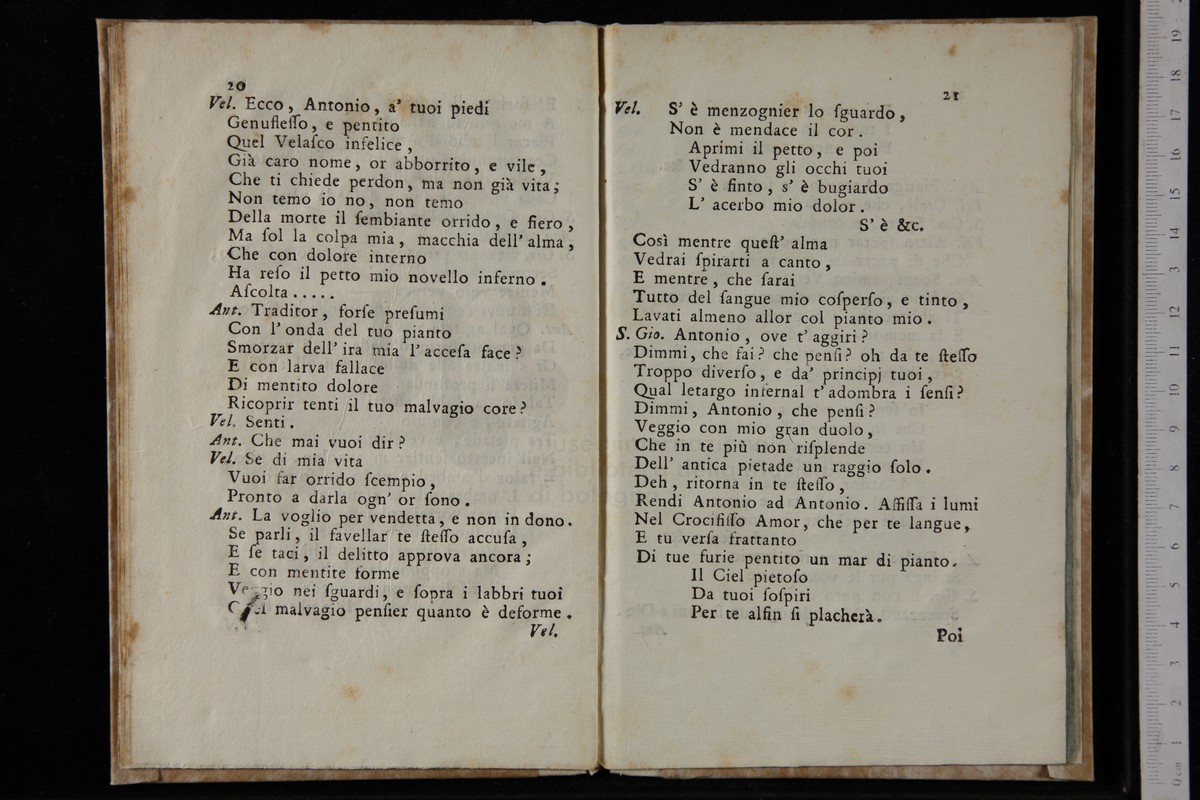 20
Vel. Ecco, Antonio, a' tuoi piedi
Genufleſſo, e pentito
Quel Velaſco infelice,
Già caro nome, or abborrito, e vile,
Che ti chiede perdon, ma non già vita;
Non temo io no, non temo
Della morte il ſembiante orrido, e fiero,
Ma ſol la colpa mia, macchia dell' alma,
Che con dolore interno
Ha reſo il petto mio novello inferno.
Aſcolta.....
Ant. Traditor, forſe preſumi
Con l' onda del tuo pianto
Smorzar dell' ira mia l' acceſa face?
E con larva fallace
Di mentito dolore
Ricoprir tenti il tuo malvagio core?
Vel. Senti.
Ant. Che mai vuoi dir?
Vel. Se di mia vita
Vuoi far orrido ſcempio,
Pronto a darla ogn' or ſono.
Ant. La voglio per vendetta, e non in dono.
Se parli, il favellar te ſteſſo accuſa,
E ſe taci, il delitto approva ancora;
E con mentite forme
Veggio nei ſguardi, e ſopra i labbri tuoi
malvagio penſier quanto è deforme.
Vel.
21
Vel. S' è menzognier lo ſguardo,
Non è mendace il cor.
Aprimi il petto, e poi
Vedranno gli occhi tuoi
S' è finto, s' è bugiardo
L' acerbo mio dolor.
S' è &c.
Così mentre queſt' alma
Vedrai ſpirarti a canto,
E mentre, che ſarai
Tutto del ſangue mio coſperſo, e tinto,
Lavati almeno allor col pianto mio.
S. Gio. Antonio, ove t' aggiri?
Dimmi, che fai? che penſi? oh da te ſteſſo
Troppo diverſo, e da' principj tuoi,
Qual letargo infernal t' adombra i ſenſi?
Dimmi, Antonio, che penſi?
Veggio con mio gran duolo,
Che in te più non riſplende
Dell' antica pietade un raggio ſolo.
Deh, ritorna in te ſteſſo,
Rendi Antonio ad Antonio. Affiſſa i lumi
Nel Crocifiſſo Amor, che per te langue,
E tu verſa frattanto
Di tue furie pentito un mar di pianto.
Il Ciel pietoſo
Da tuoi ſoſpiri
Per te alfin ſi placherà.
Poi